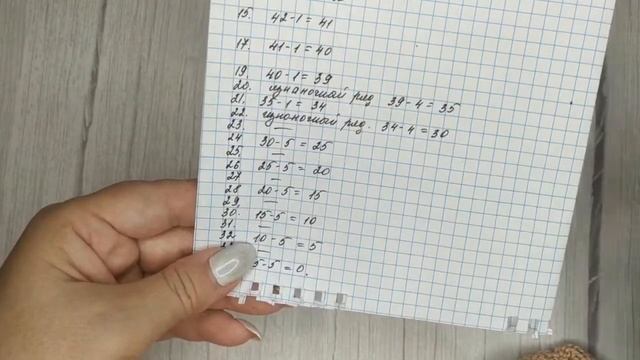 15. 42-1 = 41
17. 41-1 = 40
19. 40-1 = 39
20. изнаночный ряд 39-4 = 35
21. 35-1 = 34
22. изнаночный ряд. 34-4 = 30
23. —
24. 30-5 = 25
25. —
26. 25-5 = 20
27. —
28. 20-5 = 15
29. —
30. 15-5 = 10
31. —
32. 10-5 = 5
5-5 = 0.